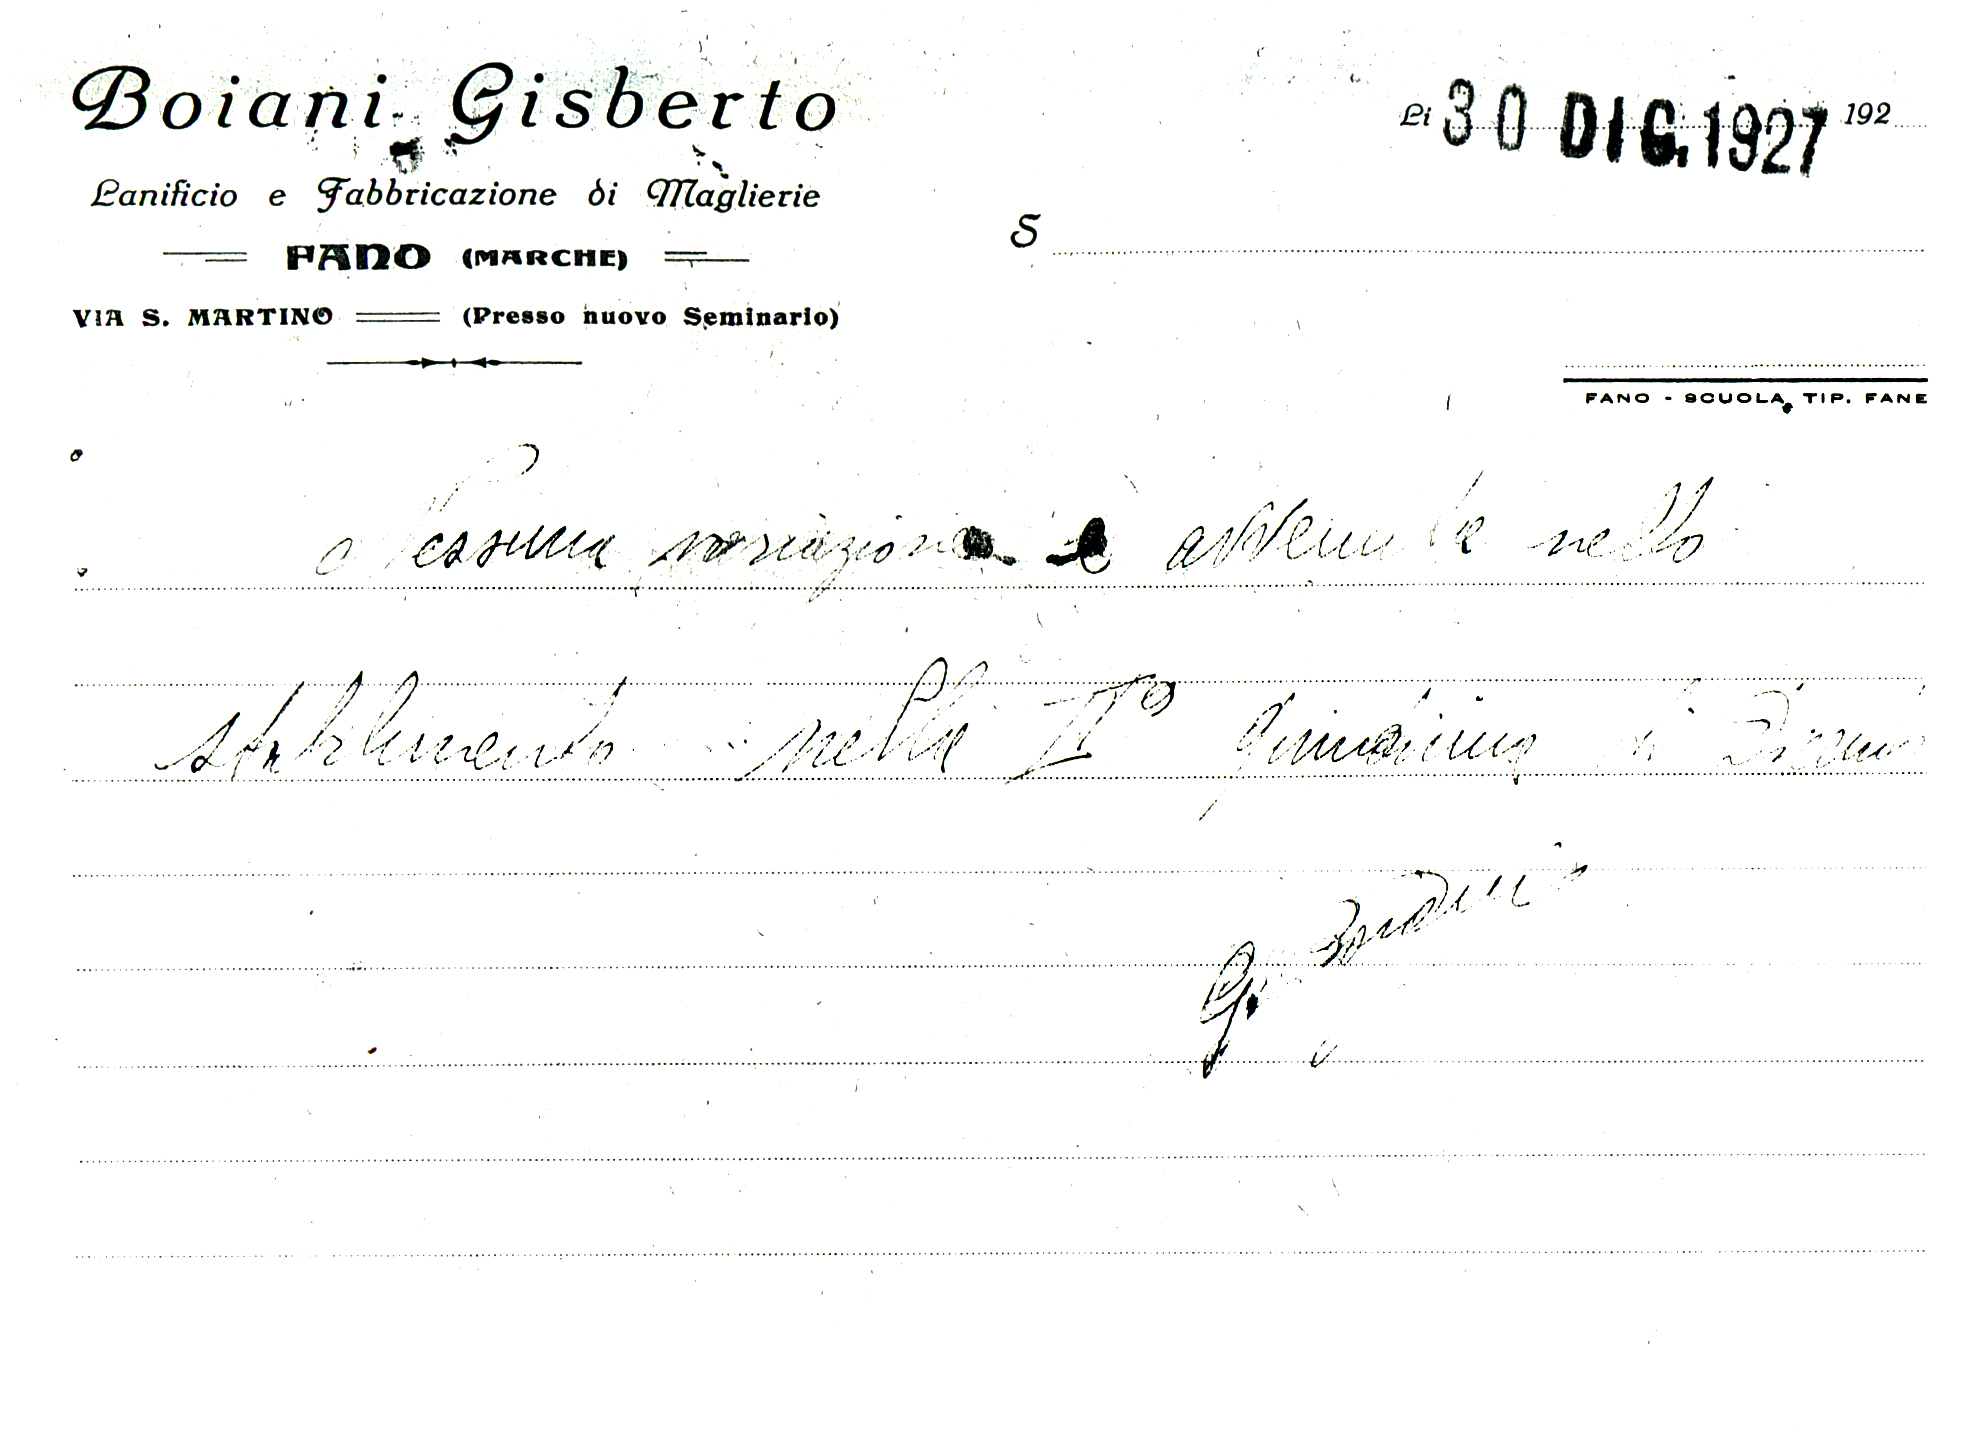 Boiani Gisberto
Lanificio e Fabbricazione di Maglierie
FANO (MARCHE)
VIA S. MARTINO (Presso nuovo Seminario)
Li 30 DIC. 1927 192
S
FANO - SCUOLA TIP. FANE
Nessuna variazione è avvenuta nello
stabilimento nella IIa quindicina di
G. Boiani